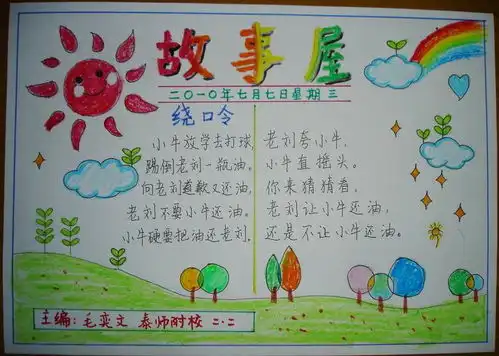 故事屋
二〇一〇年七月七日星期三
绕口令
小牛放学去打球,
踢倒老刘一瓶油。
向老刘道歉又还油。
老刘不要小牛还油。
小牛硬要把油还老刘。
老刘夸小牛,
小牛直摇头。
你来猜猜看,
老刘让小牛还油。
还是不让小牛还油。
主编:毛奕文 泰师附校 二·二